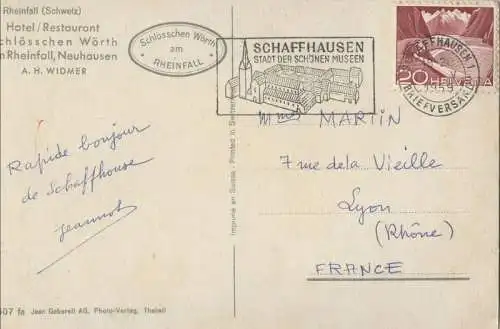 Rheinfall (Schweiz)
Hotel/Restaurant
chlösschen Wörth
m Rheinfall, Neuhausen
A. H. WIDMER
Schlösschen Wörth
am
RHEINFALL
SCHAFFHAUSEN
STADT DER SCHÖNEN MUSEEN
20 HELVETIA
SCHAFFHAUSEN
BRIEFVERSAND
Rapide bonjour
de Schaffhouse
Jeannot
Mme MARTIN
7 rue de la Vieille
Lyon
(Rhône)
FRANCE
Imprimé en Suisse - Printed in Switzerland
607 fa Jean Gaberell AG, Photo-Verlag, Thalwil